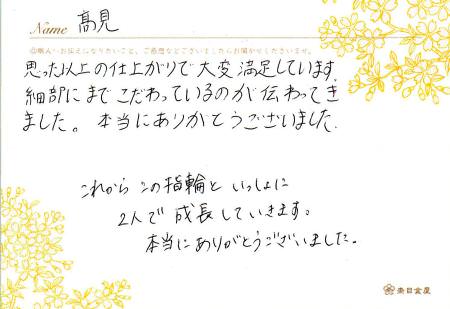 Name 高見
◎職人へお伝えになりたいこと、ご感想などございましたらお聞かせくださいませ。
思った以上の仕上がりで大変満足しています。
細部にまでこだわっているのが伝わってき
ました。本当にありがとうございました。
これからこの指輪といっしょに
2人で成長していきます。
本当にありがとうございました。
杢目金屋